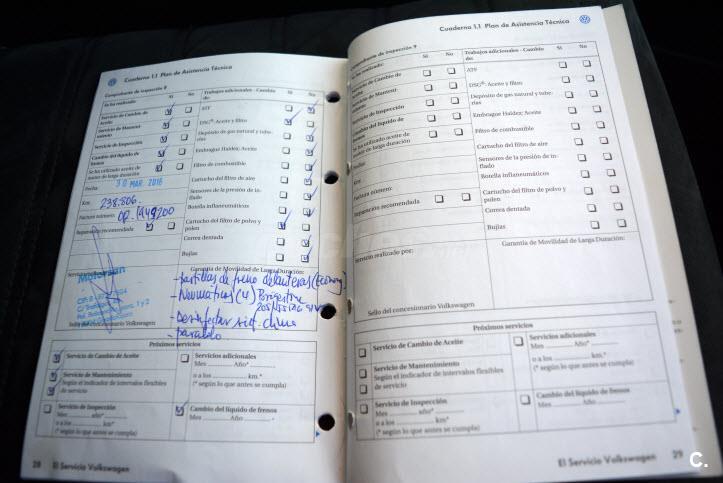 Cuaderno 1.1 Plan de Asistencia Técnica
Comprobante de inspección 8
Se ha realizado:
Sí
No
Servicio de Cambio de Aceite
Servicio de Mantenimiento
Servicio de Inspección
Cambio del líquido de frenos
Se ha utilizado aceite de motor de larga duración
Fecha
30 MAR. 2016
Km.
238.806.
Factura número:
Reparación recomendada
Trabajos adicionales - Cambio de:
Sí
No
ATF
DSG®: Aceite y filtro
Depósito de gas natural y tuberías
Embrague Haldex; Aceite
Filtro de combustible
Cartucho del filtro de aire
Sensores de la presión de inflado
Botella inflaneumáticos
Cartucho del filtro de polvo y polen
Correa dentada
Bujías
Garantía de Movilidad de Larga Duración:
- Pastillas de freno delanteras (Economy)
- Neumáticos (4)
- Desinfectar sist. clima
Sello del concesionario Volkswagen
Próximos servicios
Servicio de Cambio de Aceite
Servicio de Mantenimiento
Según el indicador de intervalos flexibles de servicio
Servicio de Inspección
Mes ........ año* ........
o a los ........ km*
(* según lo que antes se cumpla)
Servicios adicionales
Mes ........ Año* ........
o a los ........ km.*
(* según lo que antes se cumpla)
Cambio del líquido de frenos
Mes ........ Año ........
28 El Servicio Volkswagen
Cuaderno 1.1 Plan de Asistencia Técnica
Comprobante de inspección 9
Se ha realizado:
Sí
No
Servicio de Cambio de Aceite
Servicio de Mantenimiento
Servicio de Inspección
Cambio del líquido de frenos
Se ha utilizado aceite de motor de larga duración
Fecha
Km.
Factura número:
Reparación recomendada
Trabajos adicionales - Cambio de:
Sí
No
ATF
DSG®: Aceite y filtro
Depósito de gas natural y tuberías
Embrague Haldex; Aceite
Filtro de combustible
Cartucho del filtro de aire
Sensores de la presión de inflado
Botella inflaneumáticos
Cartucho del filtro de polvo y polen
Correa dentada
Bujías
Servicio realizado por:
Garantía de Movilidad de Larga Duración:
Sello del concesionario Volkswagen
Próximos servicios
Servicio de Cambio de Aceite
Servicio de Mantenimiento
Según el indicador de intervalos flexibles de servicio
Servicio de Inspección
Mes ........ año* ........
o a los ........ km*
(* según lo que antes se cumpla)
Servicios adicionales
Mes ........ Año* ........
o a los ........ km.*
(* según lo que antes se cumpla)
Cambio del líquido de frenos
Mes ........ Año ........
El Servicio Volkswagen 29
C.